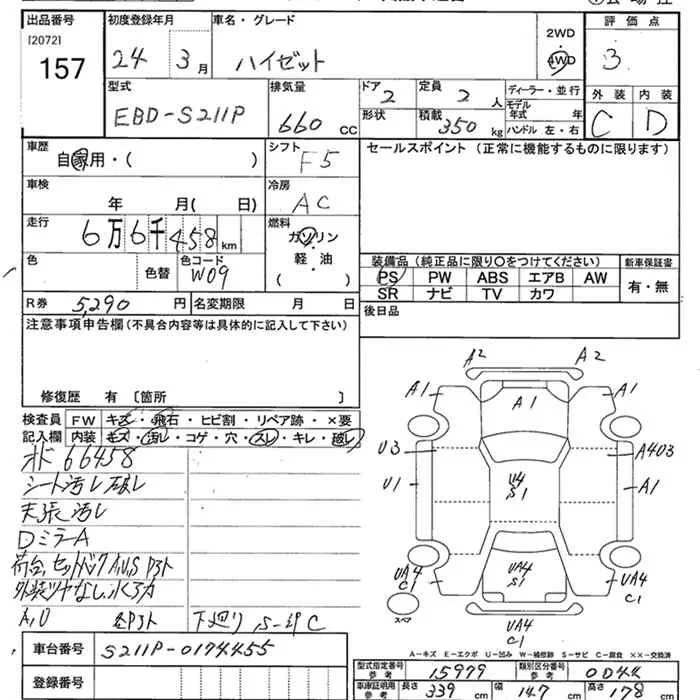 出品番号 初度登録年月 車名・グレード 評価点
[2072] 2WD
157 24 3月 ハイゼット 4WD 3
型式 排気量 ドア 定員 ディーラー・並行 外装 内装
EBD-S211P 660 CC 2 2人 モデル年式 年
形状 積載 350kg ハンドル 左・右 C D
車歴 シフト セールスポイント (正常に機能するものに限ります)
自家用・( ) F5
車検 冷房
年 月( 日) AC
走行 燃料
6万6千458km ガソリン
軽・油
( )
色 色替 色コード W09
装備品 (純正品に限り○をつけてください) 新車保証書
PS PW ABS エアB AW 有・無
SR ナビ TV カワ
R券 5,290円 名変期限 月 日
後日品
注意事項申告欄 (不具合内容等は具体的に記入して下さい)
修復歴 有 〔箇所 〕
検査員 FW キズ・飛石・ヒビ割・リペア跡・×要
記入欄 内装 キズ・汚レ・コゲ・穴・スレ・キレ・破レ
66458
シート汚レ破レ
天張汚レ
DミラーA
荷台,セットバックA,U,S
外装ツヤなし,水アカ
A,U 下廻りS-C
A2 A2
A1 A1 A1
U3 A403
U1 U4 S1 A1
UA4 C1 UA4 S1 UA4 C1
スペア UA4 C1
A-キズ E-エクボ U-凹み W-補修跡 S-サビ C-腐食 ××-交換済
車台番号 S211P-0174455
登録番号
型式指定番号 参考 15979 類別区分番号 参考
車庫証明用 参考 長さ 339cm 幅 147cm 高さ 178cm